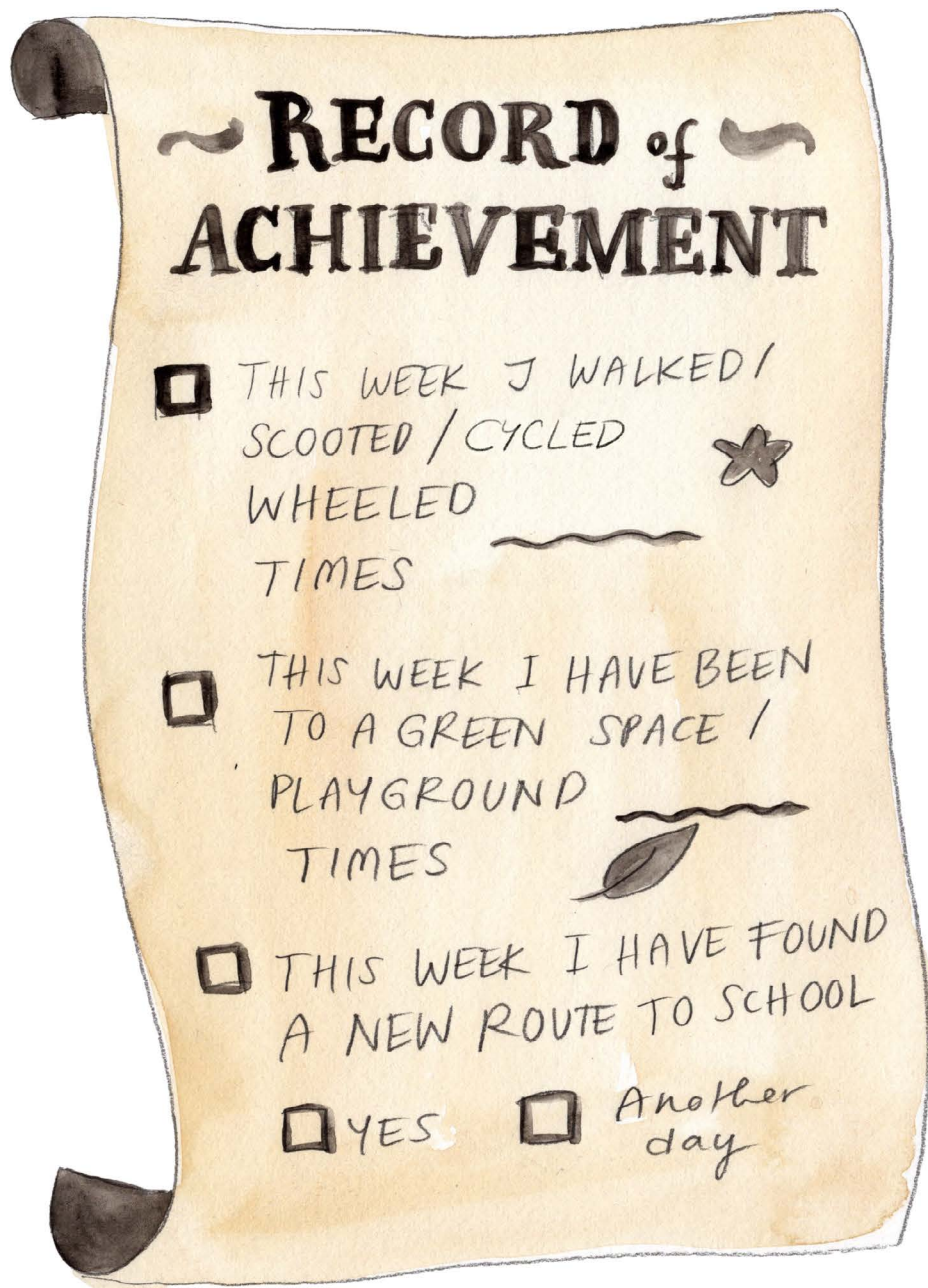 RECORD of
ACHIEVEMENT
THIS WEEK I WALKED/
SCOOTED / CYCLED
WHEELED
TIMES
THIS WEEK I HAVE BEEN
TO A GREEN SPACE /
PLAYGROUND
TIMES
THIS WEEK I HAVE FOUND
A NEW ROUTE TO SCHOOL
YES Another
day